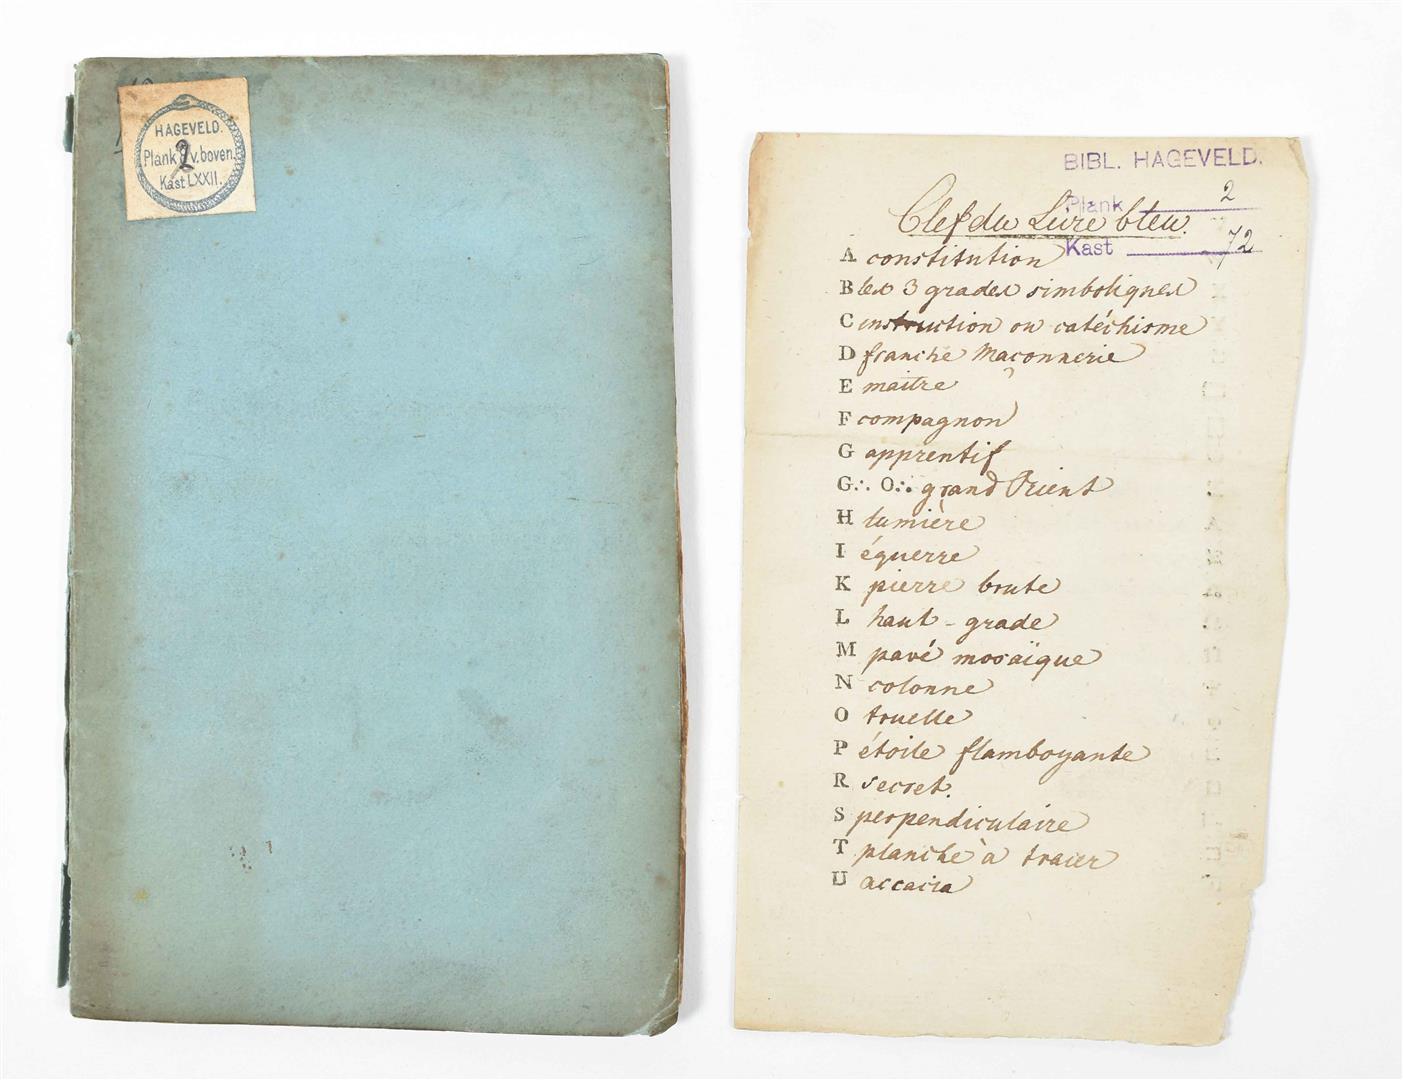 HAGEVELD.
Plank 2 v. boven.
Kast LXXII.
BIBL. HAGEVELD.
Plank 2
Clef du Livre bleu.
Kast 72
A constitution
B les 3 grades simboliques
C instruction ou catéchisme
D franche Maconnerie
E maitre
F compagnon
G apprentif
G∴ O∴ grand Orient
H lumière
I équerre
K pierre brute
L haut-grade
M pavé mosaïque
N colonne
O truelle
P étoile flamboyante
R secret.
S perpendiculaire
T planche à tracer
U accacia